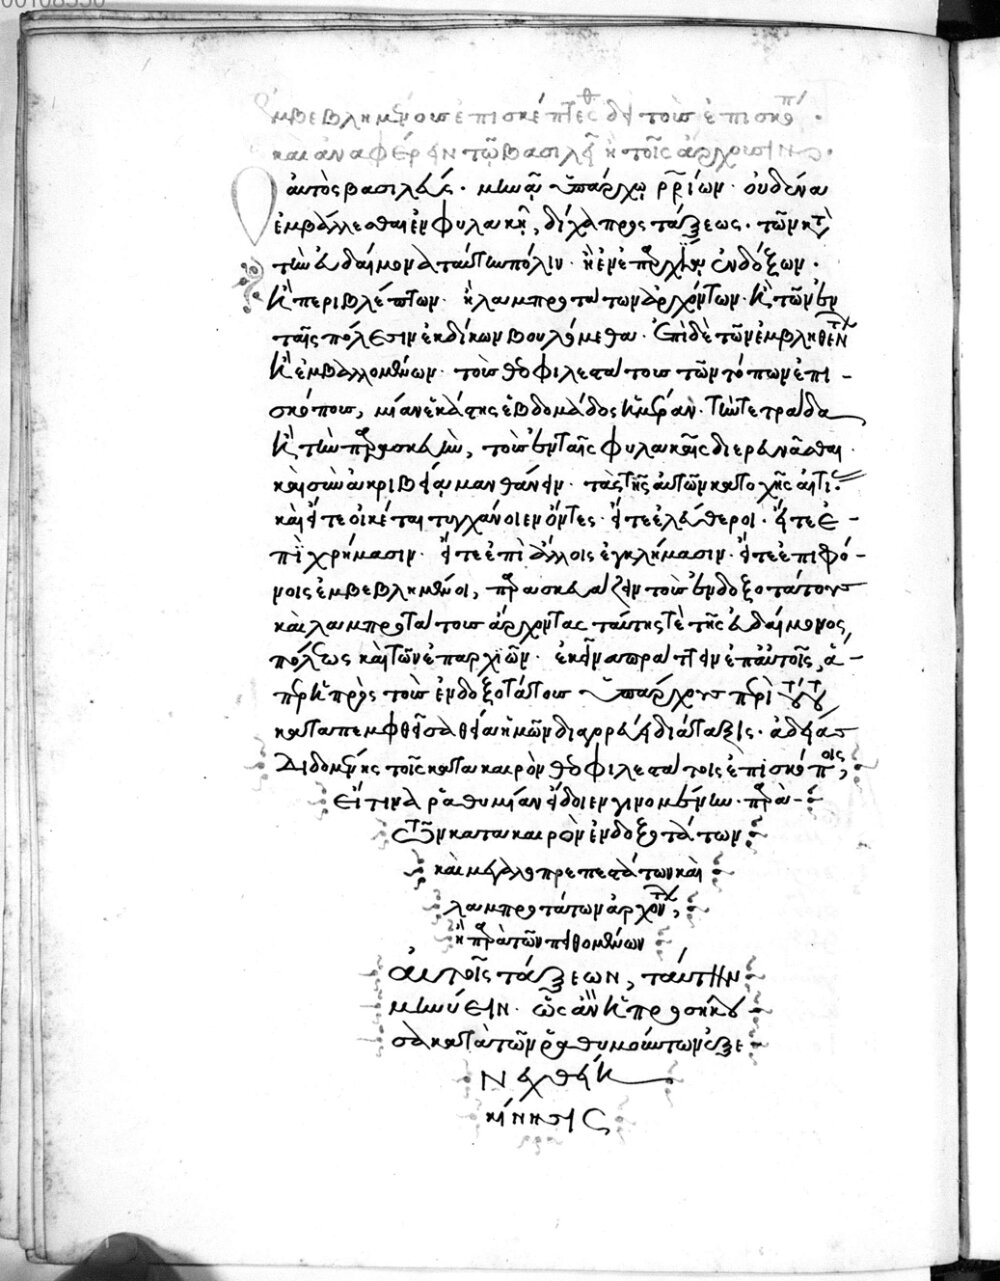 ἐμβεβλημένους ἐπισκέπτεσθαι δεῖ τοὺς ἐπισκόπ
καὶ ἀναφέρειν τῶ βασιλεῖ κ τοῖς ἄρχουσιν
Ὁ αὐτὸς βασιλεύς. μηνᾷ ὑπάρχω πραιτωρίων. οὐδένα
ἐμβάλλεσθαι ἐν φυλακῆ, δίχα προστάξεως. τῶν κατὰ
τὴν εὐδαίμονα ταύτην πόλιν. ἢ ἐν ἐπαρχίαις ἐνδόξων.
κ περιβλέπτων. ἢ λαμπροτάτων ἀρχόντων. κ τῶν ἐν
ταῖς πόλεσιν ἐκδίκων βουλόμεθα. ἐπὶ δὲ τῶν ἐμβληθέντων
κ ἐμβαλλομένων. τοὺς θεοφιλεστάτους τῶν τόπων ἐπι-
σκόπους, μίαν ἑκάστης ἑβδομάδος ἡμέραν. τὴν τετράδα
κ τὴν παρασκευὴν, τοὺς ἐν ταῖς φυλακαῖς διερευνᾶσθαι.
καὶ σὺν ἀκριβείᾳ μανθάνειν. τὰς τῆς αὐτῶν κατοχῆς αἰτίας
καὶ εἴτε οἰκέται τυγχάνοιεν ὄντες. εἴτε ἐλεύθεροι. εἴτε ἐ-
πὶ χρήμασιν. εἴτε ἐπὶ ἄλλοις ἐγκλήμασιν. εἴτε ἐπὶ φό-
νοις ἐμβεβλημένοι, παρασκευάζειν τοὺς ἐνδοξοτάτους
καὶ λαμπροτάτους ἄρχοντας ταύτης τὲ τῆς εὐδαίμονος
πόλεως καὶ τῶν ἐπαρχιῶν. ἐκεῖνα πράττειν ἐπ αὐτοῖς, ἅ-
περ κ πρὸς τοὺς ἐνδοξοτάτους ὑπάρχους περὶ τούτου
καταπεμφθεῖσα θεία ἡμῶν διαγορεύει διάταξις. ἀδείας
διδομένης τοῖς κατὰ καιρὸν θεοφιλεστάτοις ἐπισκόποις,
εἴ τινα ῥαθυμίαν ἴδοιεν γινομένην. παρὰ
τῶν κατὰ καιρὸν ἐνδοξοτάτων
καὶ μεγαλοπρεπεστάτων καὶ
λαμπροτάτων ἀρχόντων,
ἢ παρὰ τῶν πειθομένων
αὐτοῖς τάξεων, ταύτην
μηνύειν. ὡς ἂν κ προσήκου
σα κατὰ τῶν ῥαθυμούντων ἐξε
νεχθείη
κίνησις